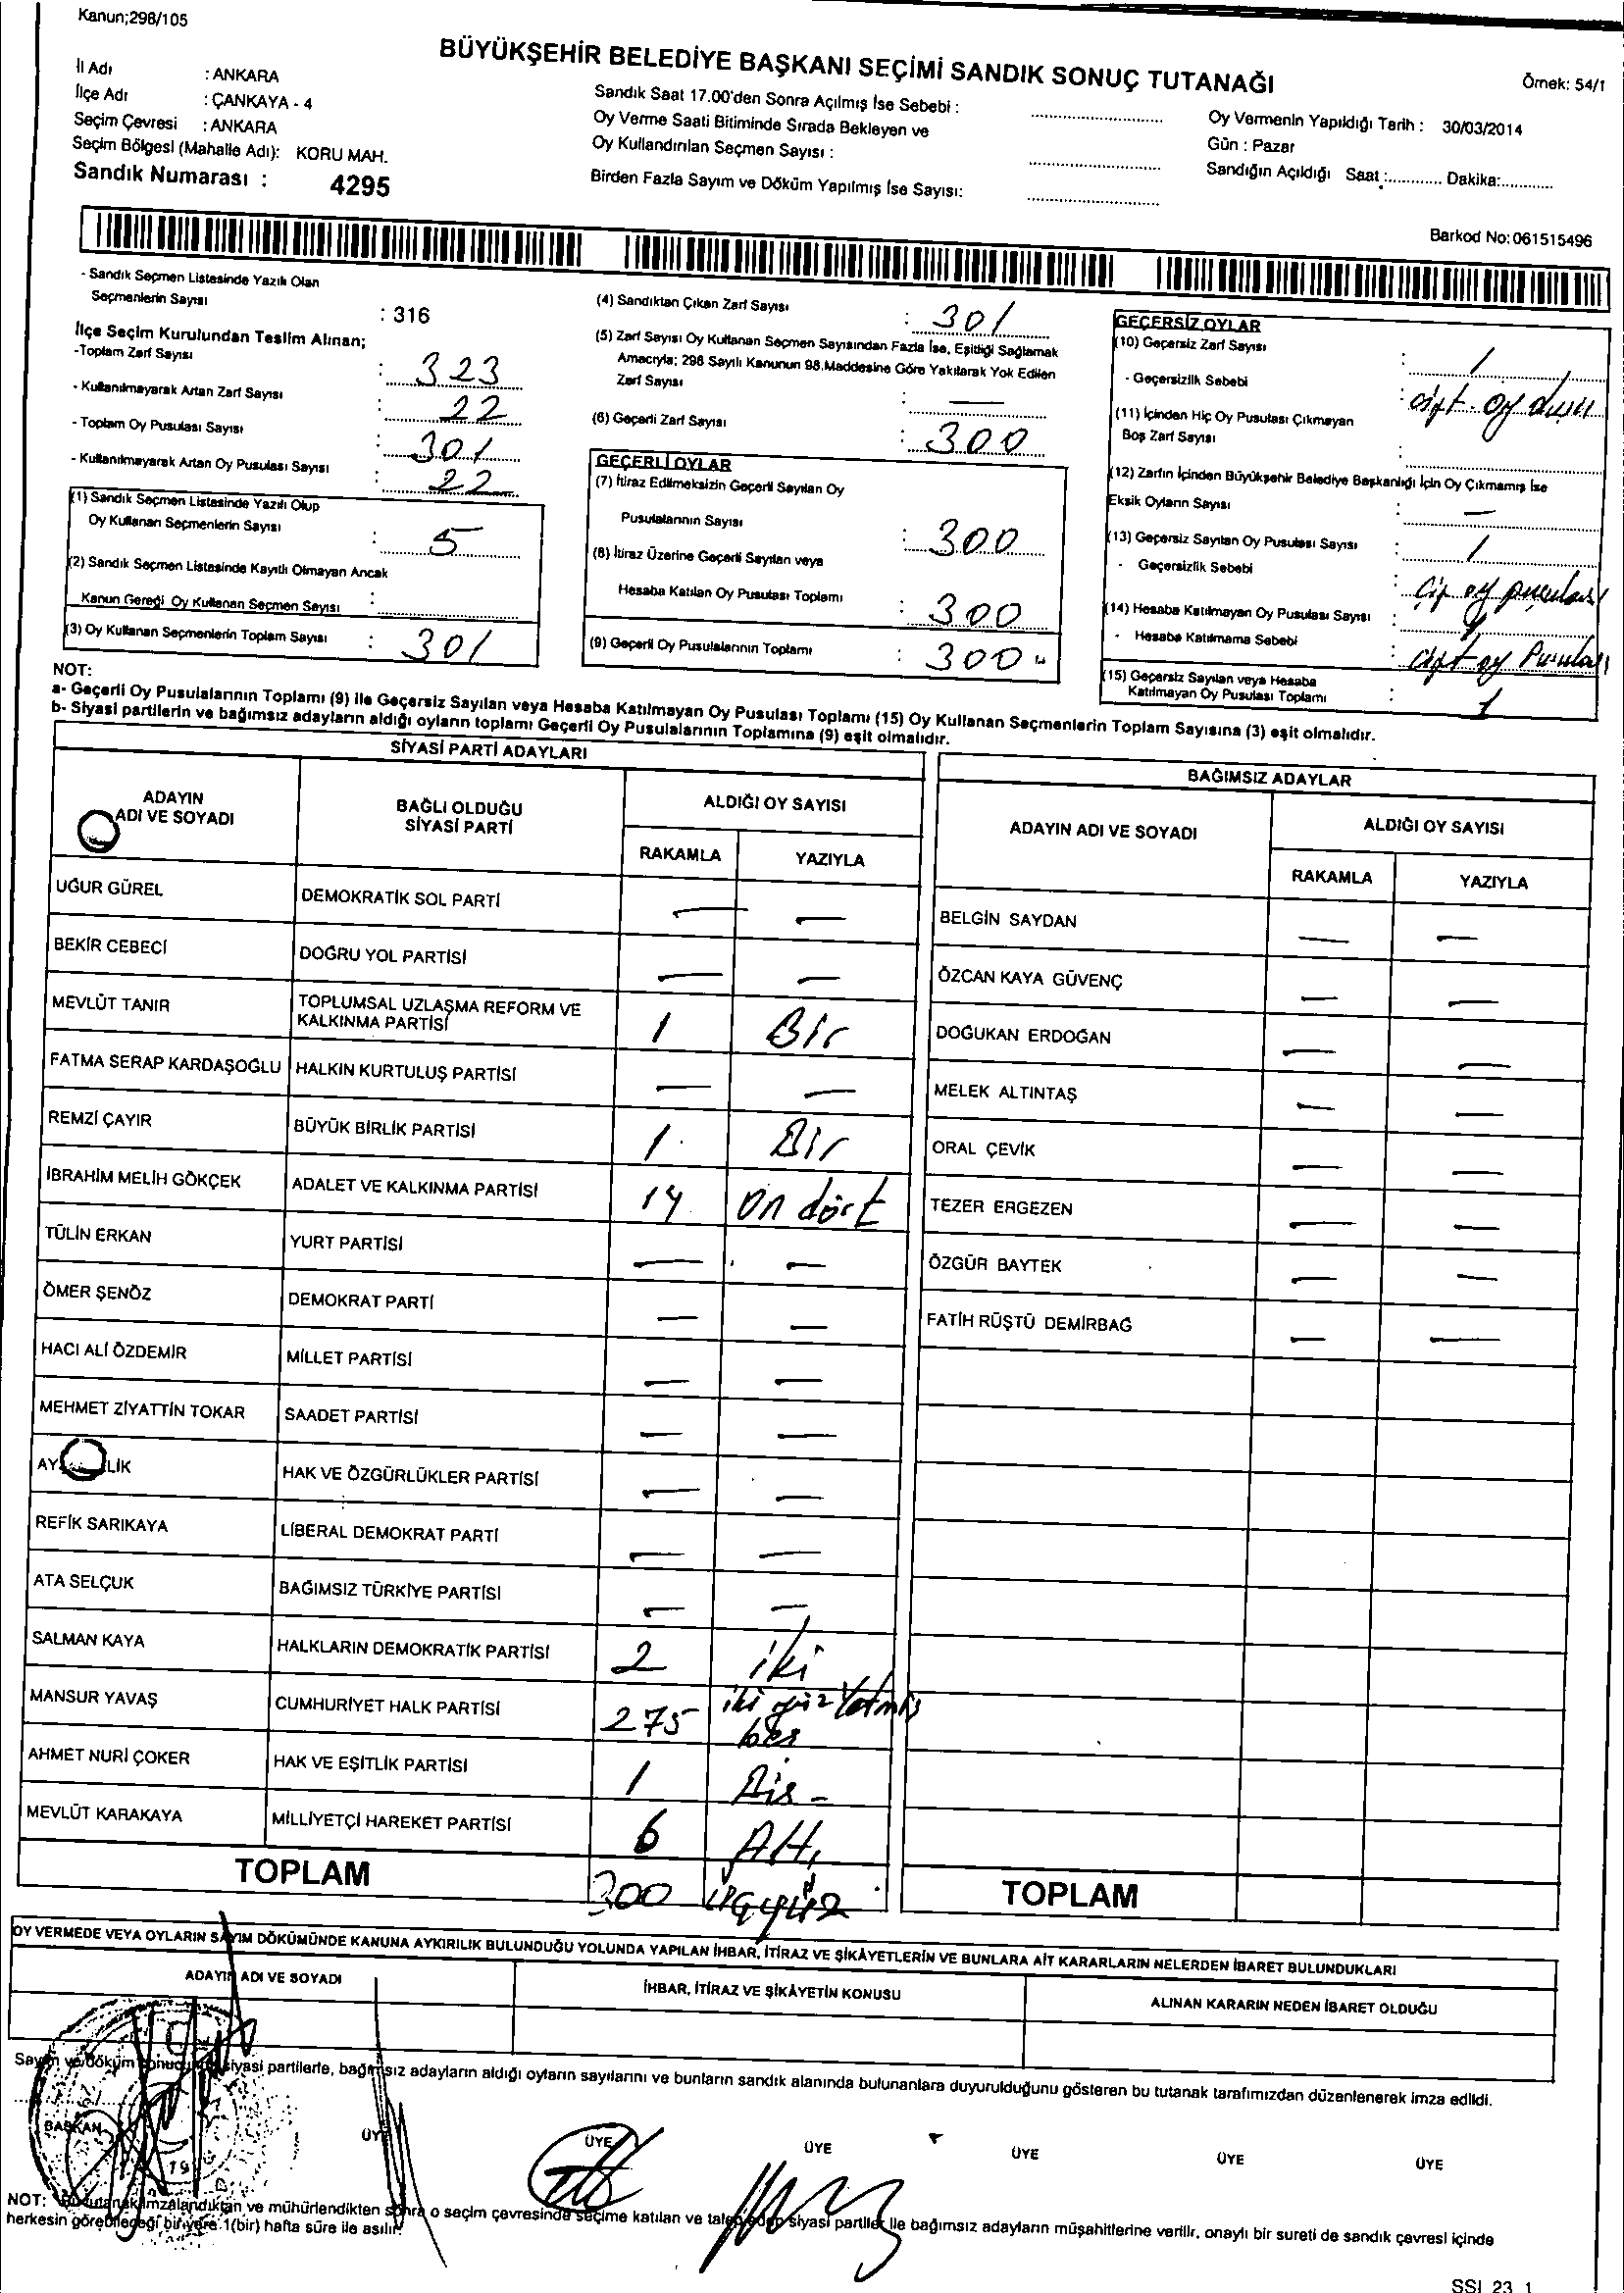 Kanun;298/105
BÜYÜKŞEHİR BELEDİYE BAŞKANI SEÇİMİ SANDIK SONUÇ TUTANAĞI
Örnek: 54/1
İl Adı : ANKARA
İlçe Adı : ÇANKAYA - 4
Seçim Çevresi : ANKARA
Seçim Bölgesi (Mahalle Adı): KORU MAH.
Sandık Numarası : 4295
Sandık Saat 17.00'den Sonra Açılmış İse Sebebi :
Oy Verme Saati Bitiminde Sırada Bekleyen ve
Oy Kullandırılan Seçmen Sayısı :
Birden Fazla Sayım ve Döküm Yapılmış İse Sayısı:
Oy Vermenin Yapıldığı Tarih : 30/03/2014
Gün : Pazar
Sandığın Açıldığı Saat :............ Dakika:............
Barkod No: 061515496
- Sandık Seçmen Listesinde Yazılı Olan
Seçmenlerin Sayısı : 316
İlçe Seçim Kurulundan Teslim Alınan;
-Toplam Zarf Sayısı : 323
- Kullanılmayarak Artan Zarf Sayısı : 22
- Toplam Oy Pusulası Sayısı : 301
- Kullanılmayarak Artan Oy Pusulası Sayısı : 22
(1) Sandık Seçmen Listesinde Yazılı Olup
Oy Kullanan Seçmenlerin Sayısı : 5
(2) Sandık Seçmen Listesinde Kayıtlı Olmayan Ancak
Kanun Gereği Oy Kullanan Seçmen Sayısı :
(3) Oy Kullanan Seçmenlerin Toplam Sayısı : 301
(4) Sandıktan Çıkan Zarf Sayısı : 301
(5) Zarf Sayısı Oy Kullanan Seçmen Sayısından Fazla İse, Eşitliği Sağlamak
Amacıyla; 298 Sayılı Kanunun 98.Maddesine Göre Yakılarak Yok Edilen
Zarf Sayısı : —
(6) Geçerli Zarf Sayısı : 300
GEÇERLİ OYLAR
(7) İtiraz Edilmeksizin Geçerli Sayılan Oy
Pusulalarının Sayısı : 300
(8) İtiraz Üzerine Geçerli Sayılan veya
Hesaba Katılan Oy Pusulası Toplamı : 300
(9) Geçerli Oy Pusulalarının Toplamı : 300
GEÇERSİZ OYLAR
(10) Geçersiz Zarf Sayısı : 1
- Geçersizlik Sebebi : çift oy
(11) İçinden Hiç Oy Pusulası Çıkmayan
Boş Zarf Sayısı :
(12) Zarfın İçinden Büyükşehir Belediye Başkanlığı İçin Oy Çıkmamış İse
Eksik Oyların Sayısı : —
(13) Geçersiz Sayılan Oy Pusulası Sayısı : 1
- Geçersizlik Sebebi : Çif oy pusulası
(14) Hesaba Katılmayan Oy Pusulası Sayısı : 1
- Hesaba Katılmama Sebebi : çift oy Pusulası
(15) Geçersiz Sayılan veya Hesaba
Katılmayan Oy Pusulası Toplamı : 1
NOT:
a- Geçerli Oy Pusulalarının Toplamı (9) ile Geçersiz Sayılan veya Hesaba Katılmayan Oy Pusulası Toplamı (15) Oy Kullanan Seçmenlerin Toplam Sayısına (3) eşit olmalıdır.
b- Siyasi partilerin ve bağımsız adayların aldığı oyların toplamı Geçerli Oy Pusulalarının Toplamına (9) eşit olmalıdır.
SİYASİ PARTİ ADAYLARI
ADAYIN ADI VE SOYADI
BAĞLI OLDUĞU SİYASİ PARTİ
ALDIĞI OY SAYISI
RAKAMLA YAZIYLA
UĞUR GÜREL DEMOKRATİK SOL PARTİ — —
BEKİR CEBECİ DOĞRU YOL PARTİSİ — —
MEVLÜT TANIR TOPLUMSAL UZLAŞMA REFORM VE
KALKINMA PARTİSİ 1 Bir
FATMA SERAP KARDAŞOĞLU HALKIN KURTULUŞ PARTİSİ — —
REMZİ ÇAYIR BÜYÜK BİRLİK PARTİSİ 1 Bir
İBRAHİM MELİH GÖKÇEK ADALET VE KALKINMA PARTİSİ 14 on dört
TÜLİN ERKAN YURT PARTİSİ — —
ÖMER ŞENÖZ DEMOKRAT PARTİ — —
HACI ALİ ÖZDEMİR MİLLET PARTİSİ — —
MEHMET ZİYATTİN TOKAR SAADET PARTİSİ — —
HAK VE ÖZGÜRLÜKLER PARTİSİ — —
REFİK SARIKAYA LİBERAL DEMOKRAT PARTİ — —
ATA SELÇUK BAĞIMSIZ TÜRKİYE PARTİSİ — —
SALMAN KAYA HALKLARIN DEMOKRATİK PARTİSİ 2 iki
MANSUR YAVAŞ CUMHURİYET HALK PARTİSİ 275 iki yüz Yetmiş
beş
AHMET NURİ ÇOKER HAK VE EŞİTLİK PARTİSİ 1 Bir -
MEVLÜT KARAKAYA MİLLİYETÇİ HAREKET PARTİSİ 6 Altı
TOPLAM 300 üçyüz
BAĞIMSIZ ADAYLAR
ADAYIN ADI VE SOYADI
ALDIĞI OY SAYISI
RAKAMLA YAZIYLA
BELGİN SAYDAN — —
ÖZCAN KAYA GÜVENÇ — —
DOĞUKAN ERDOĞAN — —
MELEK ALTINTAŞ — —
ORAL ÇEVİK — —
TEZER ERGEZEN — —
ÖZGÜR BAYTEK — —
FATİH RÜŞTÜ DEMİRBAĞ — —
TOPLAM
OY VERMEDE VEYA OYLARIN SAYIM DÖKÜMÜNDE KANUNA AYKIRILIK BULUNDUĞU YOLUNDA YAPILAN İHBAR, İTİRAZ VE ŞİKÂYETLERİN VE BUNLARA AİT KARARLARIN NELERDEN İBARET BULUNDUKLARI
ADAYIN ADI VE SOYADI
İHBAR, İTİRAZ VE ŞİKÂYETİN KONUSU
ALINAN KARARIN NEDEN İBARET OLDUĞU
Sayım ve döküm siyasi partilerle, bağımsız adayların aldığı oyların sayılarını ve bunların sandık alanında bulunanlara duyurulduğunu gösteren bu tutanak tarafımızdan düzenlenerek imza edildi.
BAŞKAN ÜYE ÜYE ÜYE ÜYE ÜYE ÜYE
NOT: Bu tutanak imzalandıktan ve mühürlendikten sonra o seçim çevresinde seçime katılan ve talep eden siyasi partiler ile bağımsız adayların müşahitlerine verilir, onaylı bir sureti de sandık çevresi içinde
herkesin görebileceği bir yere 1(bir) hafta süre ile asılır.
SSI_23_1